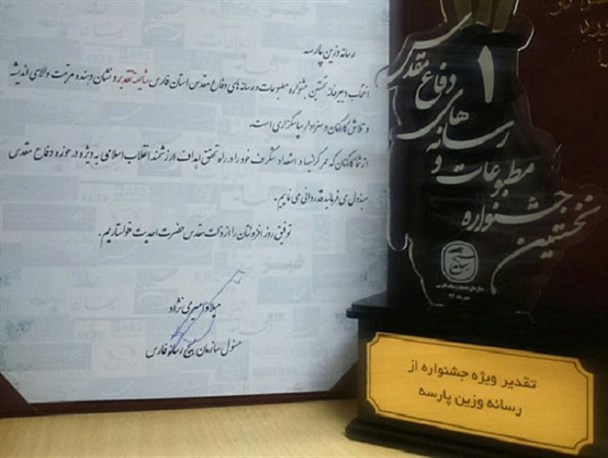 رسانه وزین پارسه
انتخاب دبیرخانه نخستین جشنواره مطبوعات و رسانه های دفاع مقدس استان فارس شایسته تقدیر و نشان دهنده مرتبت والای اندیشه
و تلاش کارکنان و سزاوار سپاسگزاری است.
از شما کارکنان که عمر گرانبها و استعداد شگرف خود را در راه تحقق اهداف ارزشمند انقلاب اسلامی به ویژه در حوزه دفاع مقدس
مبذول می فرمایند قدردانی می نماییم.
توفیق روز افزونتان را از ذات مقدس حضرت احدیت خواستاریم.
میلاد امیری نژاد
مسئول سازمان بسیج رسانه فارس
۱
نخستین جشنواره
مطبوعات و
رسانه های
دفاع مقدس
تقدیر ویژه جشنواره از
رسانه وزین پارسه